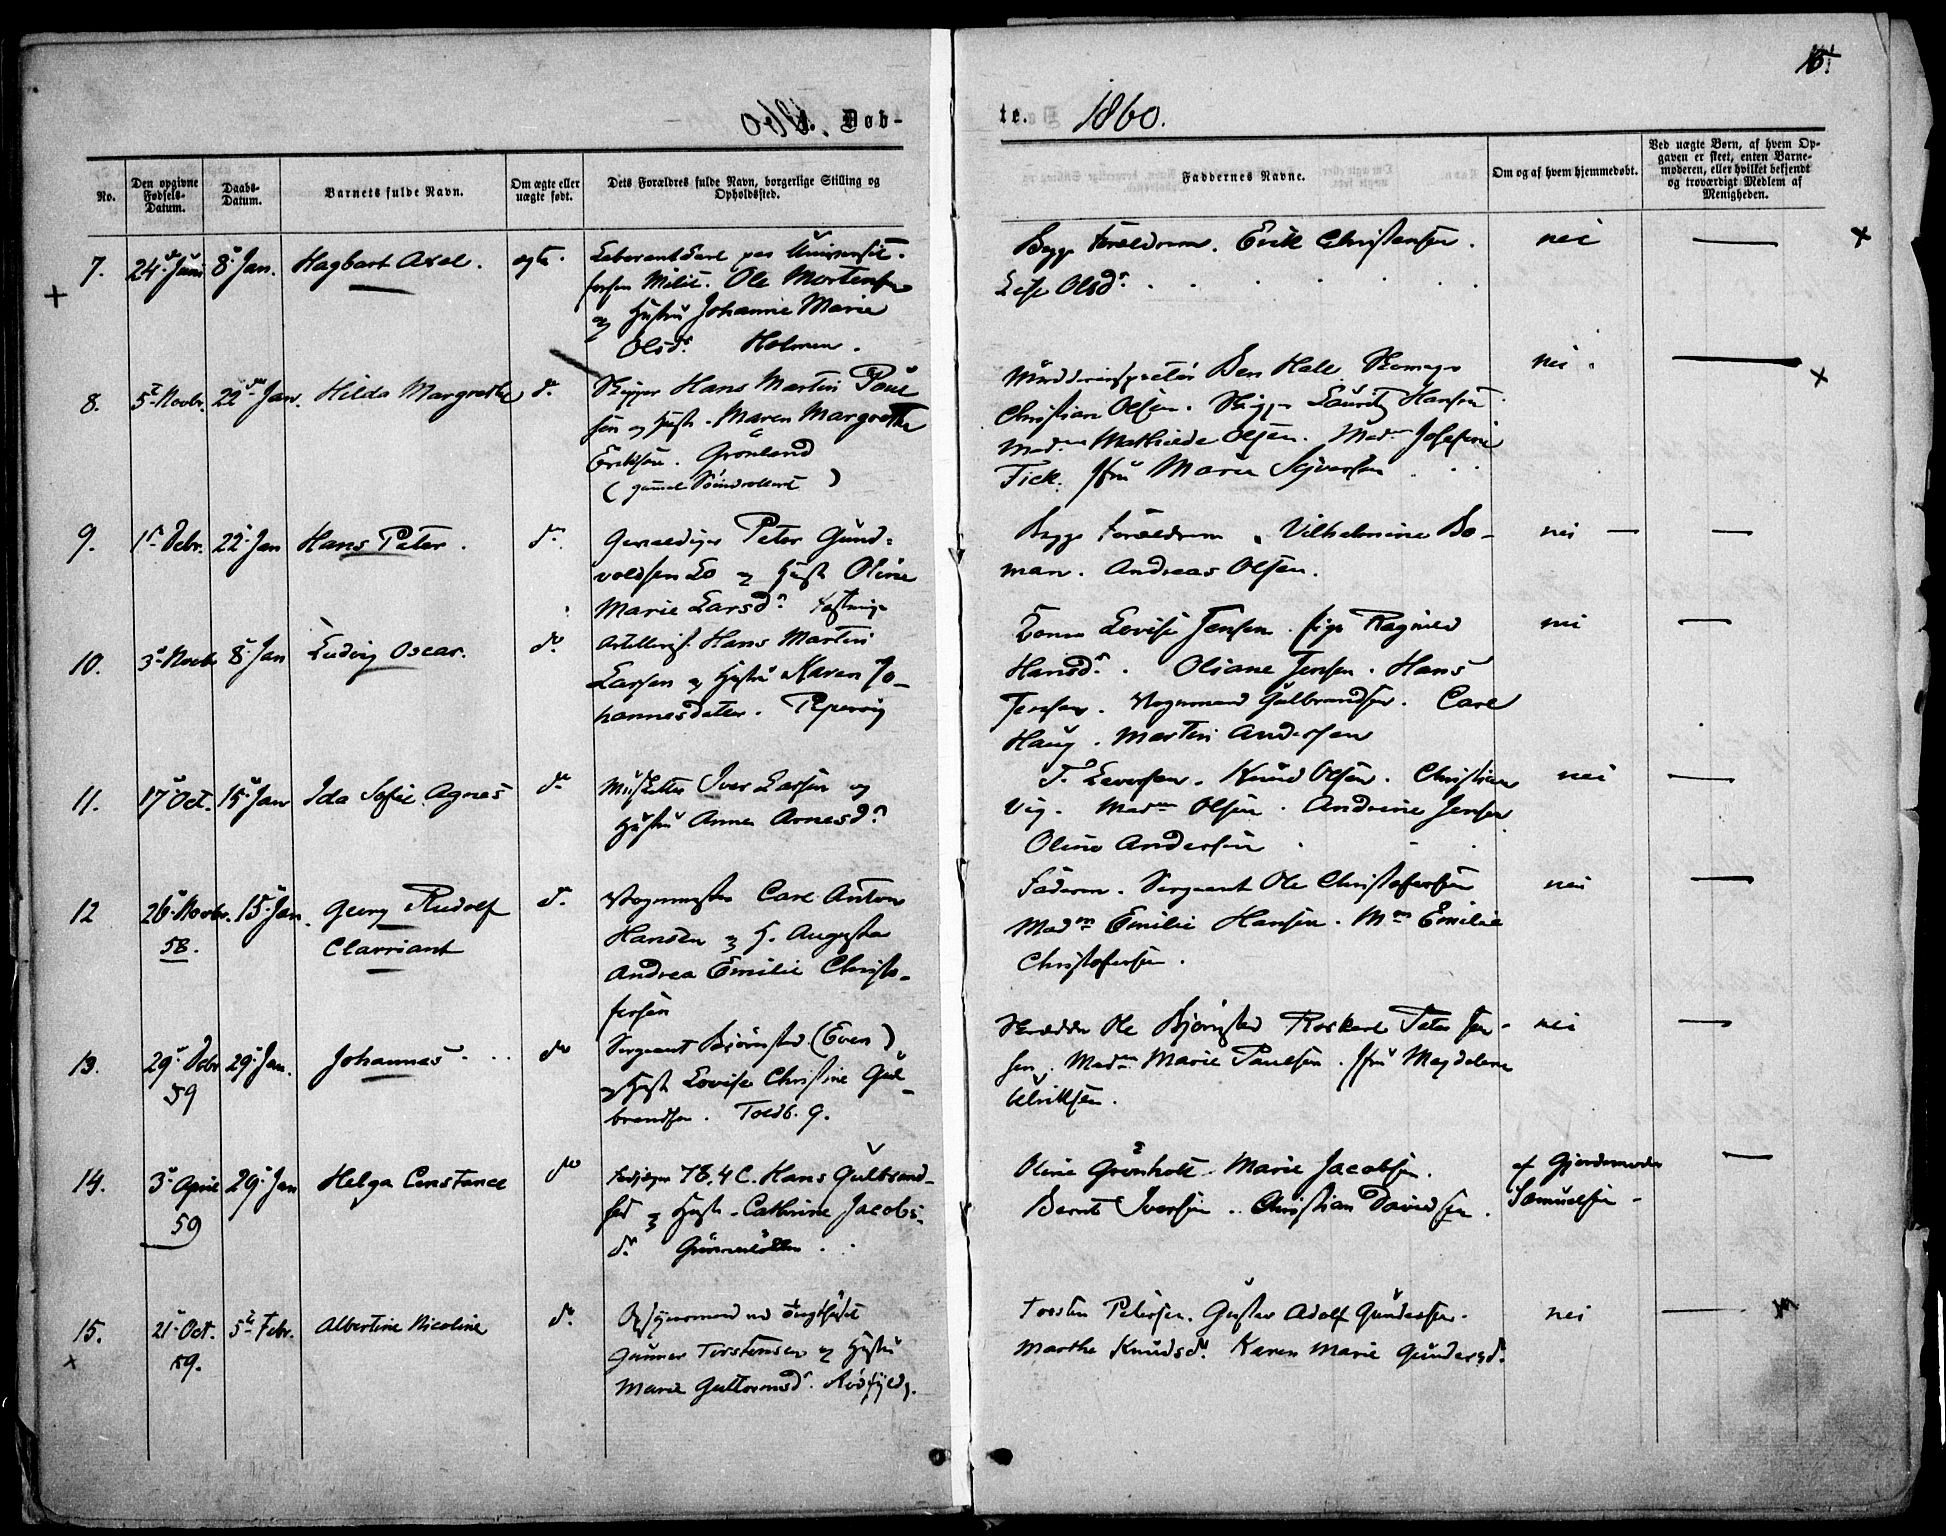 Døb-
te. 1860.
No.
Den opgivne Fødsels-Datum.
Daabs-Datum.
Barnets fulde Navn.
Om ægte eller uægte født.
Dets Forældres fulde Navn, borgerlige Stilling og Opholdssted.
Faddernes Navne.
Om og af hvem hjemmedøbt.
Ved uægte Børn, af hvem Opgaven er skeet, enten Barnemoderen, eller hvilket bekjendt og troværdigt Medlem af Menigheden.
7. 24de Juni 8de Jan. Hagbart Axel. ægte.
Ole Mortensen
og Hustru Johanne Marie
Olsdr. Holmen.
Begge Forældrene. Erik Christensen.
Lise Olsdr.
nei
8. 5te Novbr. 22de Jan. Hilda Margrethe do.
Skipper Hans Martin Paul
sen og Hust. Maren Margrethe
Eriksen. Grønland
Hall
Christian Olsen. Skipper Lauritz Hansen.
Madm Mathilde Olsen. Madm Josefine
Fick. Jfru Marie Syversen
nei.
9. 1ste Debr. 22de Jan Hans Peter. do.
Peter Gund-
voldsen Lo og Hust Oline
Marie Larsdr.
Begge Forældrene. Vilhelmine Bo-
man. Andreas Olsen.
nei
10. 3de Novbr 8de Jan Ludvig Oscar. do.
Artillerist Hans Martin
Larsen og Hustru Karen Jo-
hannesdatter. Pipervig
Lovise Jensen. Pige Ragnild
Hansdr. Oliane Jensen. Hans
Jensen. Vognmand Gulbrandsen. Carl
Haug. Martin Andersen
nei
11. 17de Oct. 15de Jan Ida Sofie Agnes do
Musketter Iver Larsen og
Hustru Anne Arnesdr
Knud Olsen. Christian
Vig. Madm Olsen. Andrine Jensen
Oline Andersen
nei
12 26de Novbr. 58. 15de Jan. Georg Rudolf
Clarriant
do.
Vognmester Carl Anton
Hansen og H. Augusta
Andrea Emilie Christo-
fersen
Faderen. Sergeant Ole Christofersen
Madm Emilie Hansen. Mm Emilie
Christofersen.
nei
13. 29de Debr 59 29de Jan. Johannes do
Sergeant Bjørnstad (Even)
og Hust Lovise Christine Gul-
brandsen. Toldb. G.
Skrædder Ole Bjørnstad Peter Jen-
sen. Madm Marie Paulsen. Jfru Magdalene
Ulriksen.
nei
14. 3de April 59 29de Jan Helga Constance do
Hans Gulbrand-
sen og Hust. Cathrine Jacobs-
dr. Grünerløkken
Oline Grønholt. Marie Jacobsen.
Bernt Iversen. Christian Davidsen.
af Gjordemoder
Samuelsen
15. 21de Oct. 59. 5te Febr. Albertine Nicoline do.
Opsynsmand ved Tugthuset
Gunner Torstensen og Hustru
Marie Guttormsdr.
Torsten Petersen. Gustav Adolf Gundersen.
Marthe Knudsdr. Karen Marie Gundersdr.
nei